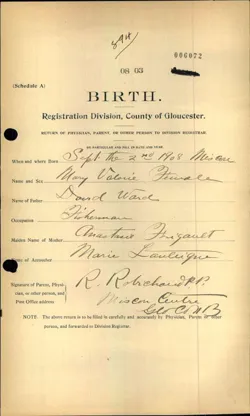 894
006072
08 03
(Schedule A)
BIRTH.
Registration Division, County of Gloucester.
RETURN OF PHYSICIAN, PARENT, OR OTHER PERSON TO DIVISION REGISTRAR
When and where Born Sept the 2nd 1908 Miscou
Name and Sex Mary Valerie Female
Name of Father David Ward
Occupation Fisherman
Maiden Name of Mother
Name of Accoucheur Marie
Signature of Parent, Physician, or other person, and Post Office address R. Robichaud P.P.
Miscou Centre
Glo Co N B
NOTE. The above return is to be filled in carefully and accurately by Physician, Parent or other person, and forwarded to Division Registrar.